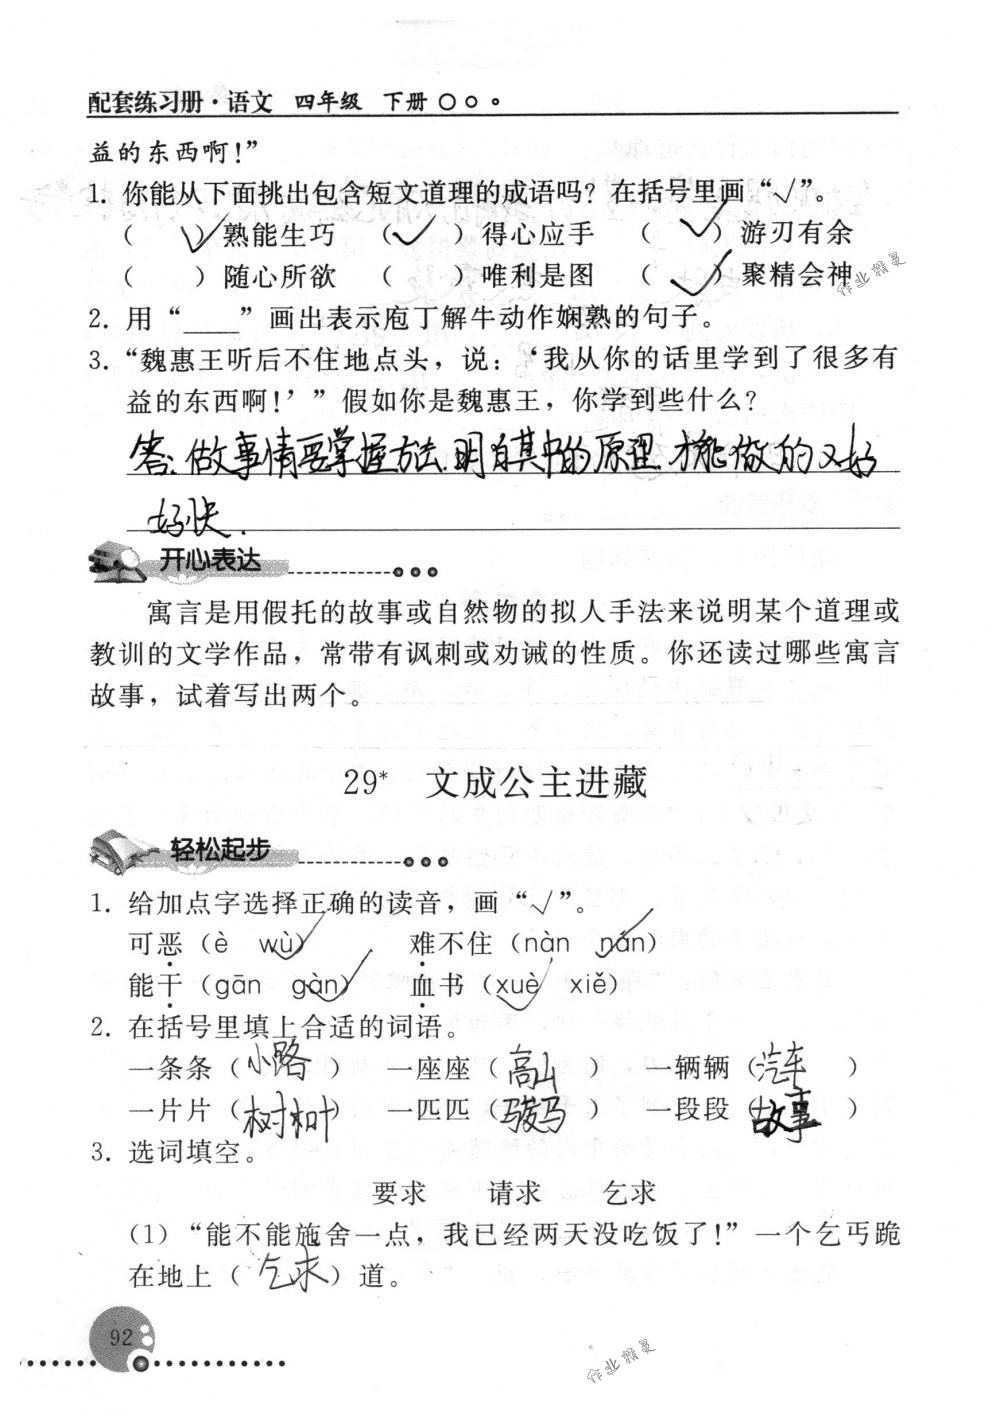 配套练习册·语文 四年级 下册○○。
益的东西啊!”
1. 你能从下面挑出包含短文道理的成语吗?在括号里画“√”。
(√)熟能生巧 (√)得心应手 (√)游刃有余
( )随心所欲 ( )唯利是图 (√)聚精会神
2. 用“____”画出表示庖丁解牛动作娴熟的句子。
3. “魏惠王听后不住地点头,说:‘我从你的话里学到了很多有
益的东西啊!’”假如你是魏惠王,你学到些什么?
答:做事情要掌握方法,明白其中的原理,才能做的又好
好快.
开心表达
寓言是用假托的故事或自然物的拟人手法来说明某个道理或
教训的文学作品,常带有讽刺或劝诫的性质。你还读过哪些寓言
故事,试着写出两个。
29* 文成公主进藏
轻松起步
1. 给加点字选择正确的读音,画“√”。
可恶(è wù√) 难不住(nàn nán√)
能干(gān gàn√) 血书(xuè√ xiě)
2. 在括号里填上合适的词语。
一条条(小路) 一座座(高山) 一辆辆(汽车)
一片片(树树) 一匹匹(骏马) 一段段(故事)
3. 选词填空。
要求 请求 乞求
(1)“能不能施舍一点,我已经两天没吃饭了!”一个乞丐跪
在地上(乞求)道。
92
作业精灵
作业精灵